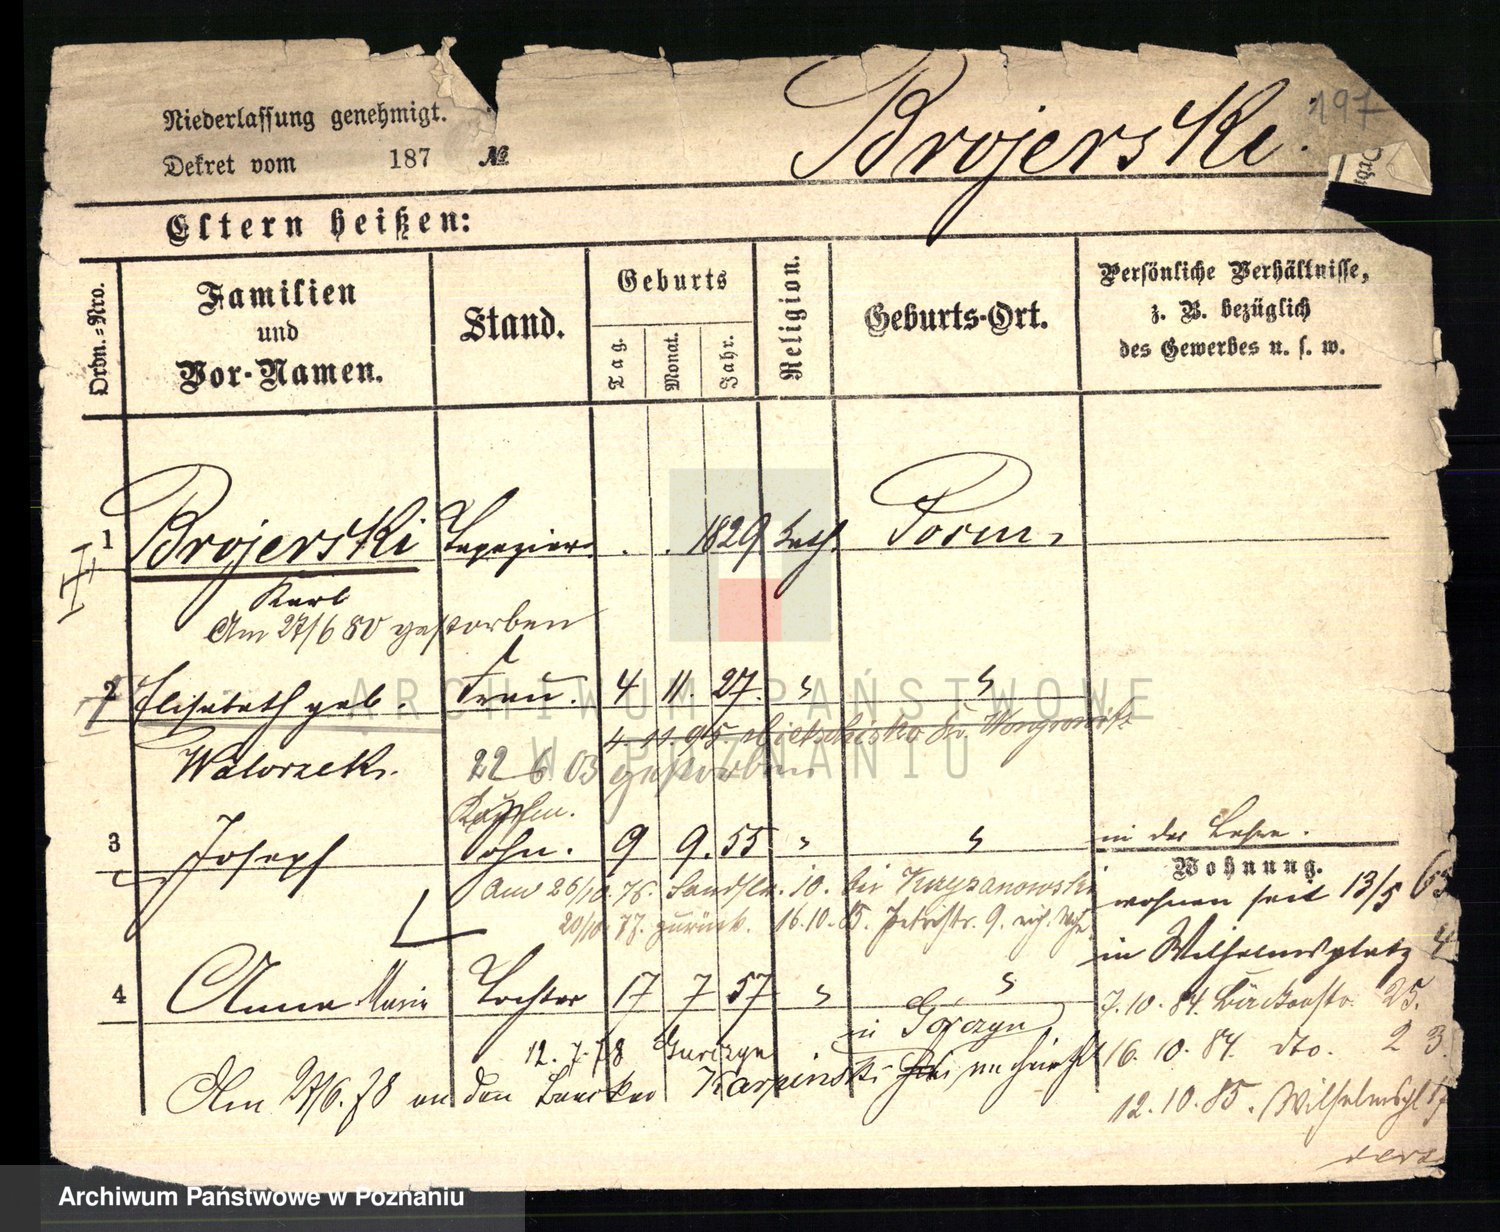 Niederlassung genehmigt.
Dekret vom 187 №
Brojerski.
197
Eltern heißen:
Ordn.-Nro.
Familien
und
Vor-Namen.
Stand.
Geburts
Tag.
Monat.
Jahr.
Religion.
Geburts-Ort.
Persönliche Verhältnisse,
z. B. bezüglich
des Gewerbes u. s. w.
1 Brojerski Tapezier . . 1829 kath. Posen
Karl
Am 27/6 80 gestorben
2 Elisabeth geb. Frau. 4 11. 27. " "
4. 11. 95 Kr. Wongrowitz
Walorzek. 22 6 03 gestorben
3 Joseph Sohn. 9 9. 55 " " in der Lehre.
Wohnung.
Am 26/10. 76. Landstr. 10. bei Kuryzanowski wohnen seit 13/5 63
20/10. 77. zurück. 16. 10. 85. Petristr. 9.
in Wilhelmsplatz 4
4 Anna Marie Tochter 17 7 57 " "
7. 10. 84. Bäckerstr. 25.
in Górczyn
12. 7. 78 Gurczyn
16. 10. 84. dto. 23.
Am 27/6. 78 an den Karpinski
12. 10. 85. Wilhelmspl 17
ARCHIWUM PAŃSTWOWE
W POZNANIU
Archiwum Państwowe w Poznaniu